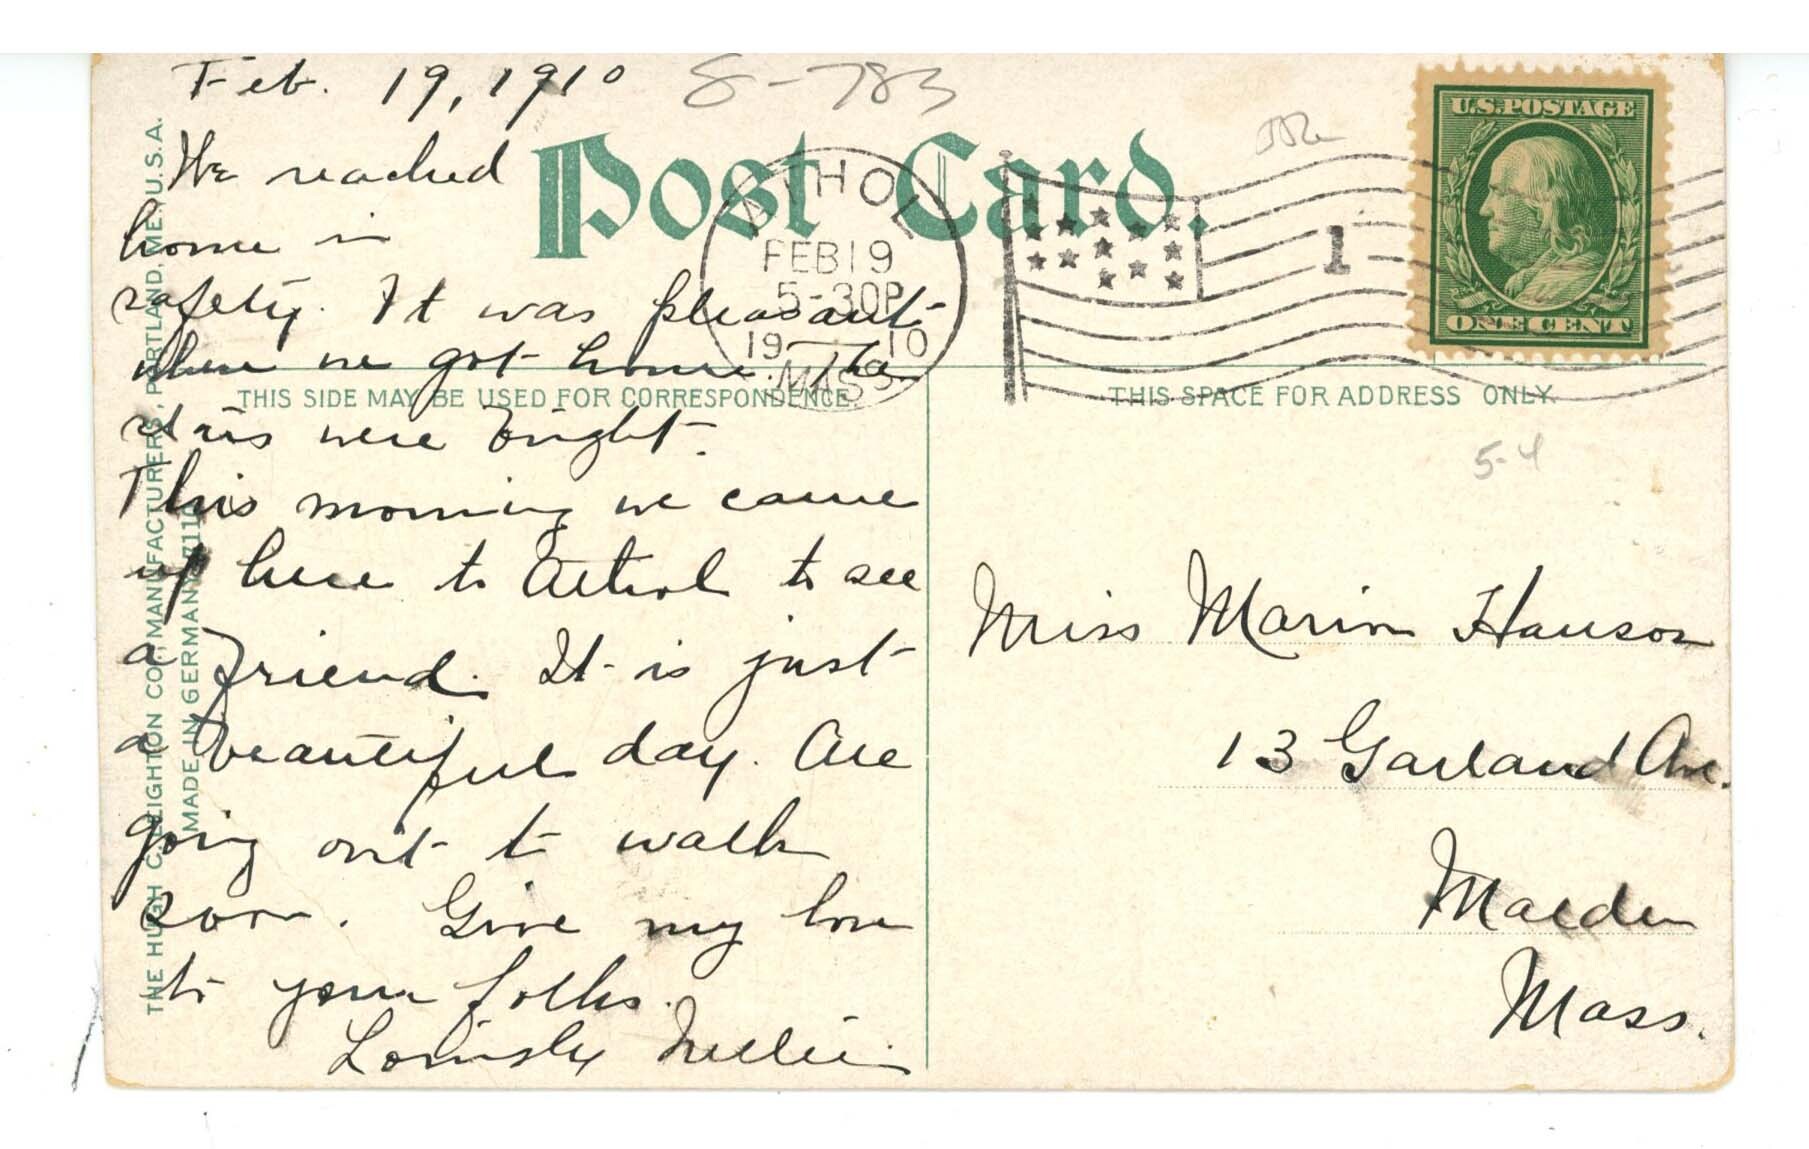 Feb. 19, 1910
S-783
We reached
home in
safety. It was pleasant
when we got home. The
stars were bright.
This morning we came
up here to Athol to see
a friend. It is just
a beautiful day. Are
going out to walk
soon. Give my love
to your folks.
Lovingly Nellie.
Post Card.
ATHOL
FEB 19
5-30P
1910
MASS.
1
U.S. POSTAGE
ONE CENT
THIS SIDE MAY BE USED FOR CORRESPONDENCE
THIS SPACE FOR ADDRESS ONLY.
5-4
Miss Marion Hanson
13 Garland Ave.
Malden
Mass.
THE HUGH C. LEIGHTON CO., MANUFACTURERS, PORTLAND, ME., U.S.A.
MADE IN GERMANY